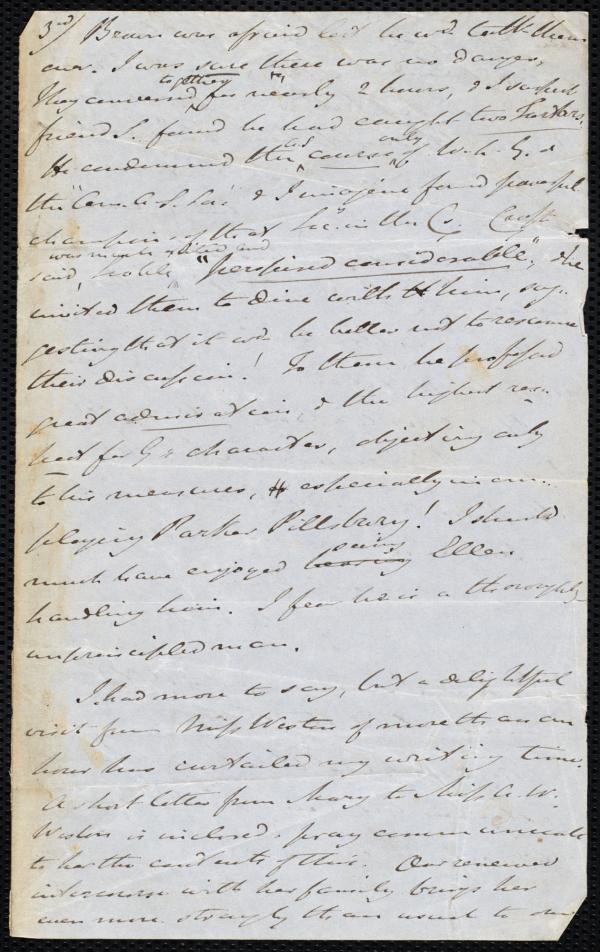 3rd/ Brown was afraid lest he wd. talk them
over. I was sure there was no danger,
They conversed together for nearly 2 hours, & I suspect
friend S. found he had caught two Tartars.
He condemned the course only of W. L. G. &
the Am. A. S. Soc. & I imagine found powerful
champions of that Soc. in the Cs. Craft
said, S. was much excited and "perspired considerable", & he
invited them to dine with him, sug-
gesting that it wd. be better not to resume
their discussion! To them he professed
great admiration, & the highest res-
pect for G's character, objecting only
to his measures, & especially in em-
ploying Parker Pillsbury! I should
much have enjoyed hearing seeing Ellen
handling him. I fear he is a thoroughly
unprincipled man.
I had more to say, but a delightful
visit from Miss Weston of more than an
hour has curtailed my writing time.
A short letter from Mary to Miss A. W.
Weston is inclosed. pray communicate
to her the contents of this. Our renewed
intercourse with her family brings her
even more strongly than usual to our